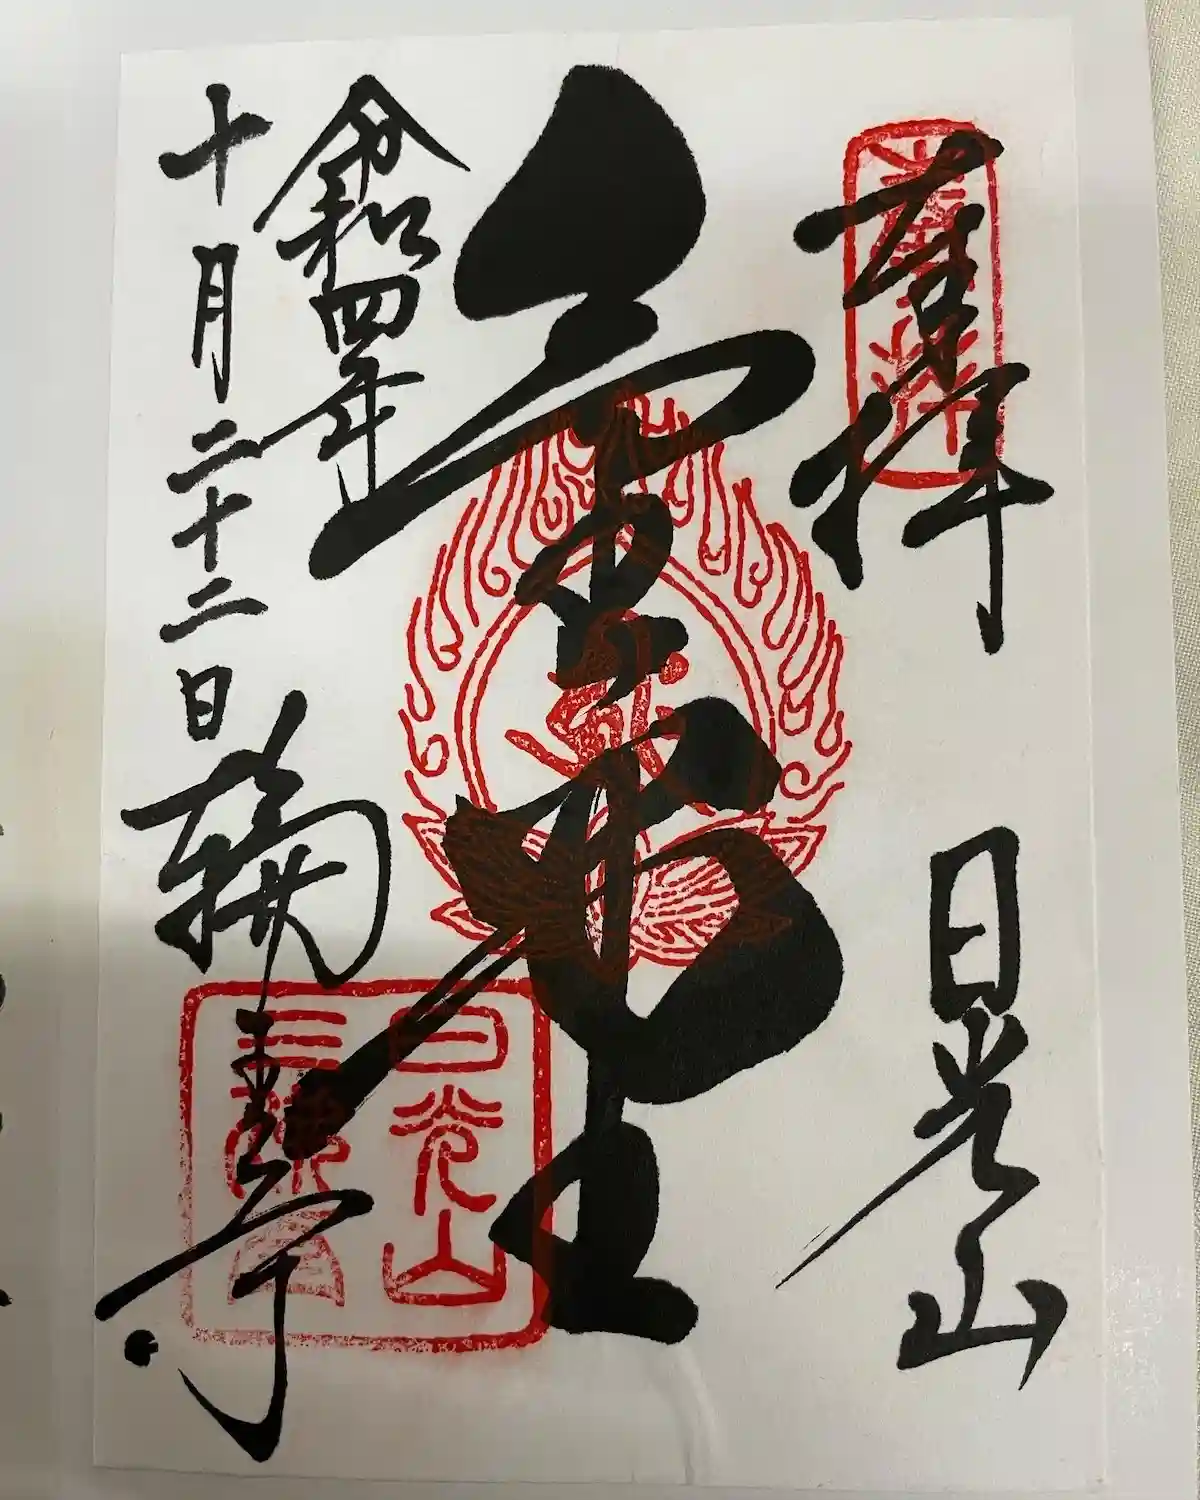 奉拝 日光山
金堂
令和四年
十月二十二日 輪王寺
日光山
三佛堂